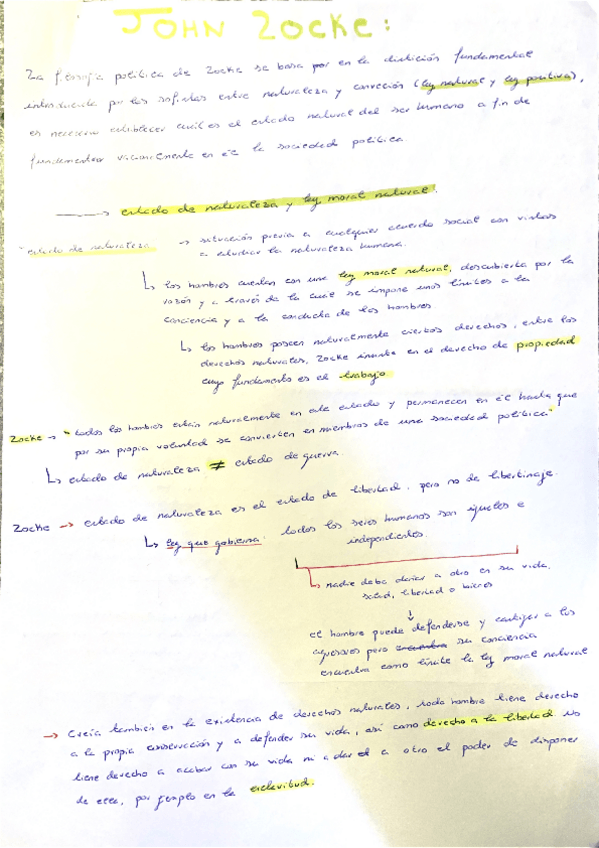 JOHN LOCKE:
La filosofía política de Locke se basa por en la distinción fundamental
introducida por los sofistas entre naturaleza y convección (ley natural y ley positiva),
es necesario establecer cuál es el estado natural del ser humano a fin de
fundamentar en él la sociedad política
→ estado de naturaleza y ley moral natural.
"estado de naturaleza → situación previa a cualquier acuerdo social con vistas
a estudiar la naturaleza humana.
↳ los hombres cuentan con una ley moral natural, descubierta por la
razón y a través de la cual se impone unos límites a la
conciencia y a la conducta de los hombres
↳ los hombres poseen naturalmente ciertos derechos, entre los
derechos naturales, Locke insiste en el derecho de propiedad
cuyo fundamento es el trabajo
Locke → "todos los hombres están naturalmente en este estado y permanecen en él hasta que
por su propia voluntad se convierten en miembros de una sociedad política"
↳ estado de naturaleza ≠ estado de guerra.
Locke → estado de naturaleza es el estado de libertad, pero no de libertinaje.
↳ ley que gobierna: todos los seres humanos son iguales e
independientes.
↳ nadie debe dañar a otro en su vida,
salud, libertad o bienes
↓
el hombre puede defenderse y castigar a los
agresores pero encuentra su conciencia
encuentra como límite la ley moral natural
→ Creía también en la existencia de derechos naturales, todo hombre tiene derecho
a la propia conservación y a defender su vida, así como derecho a la libertad. No
tiene derecho a acabar con su vida ni a dar el a otro el poder de disponer
de ella, por ejemplo en la esclavitud.